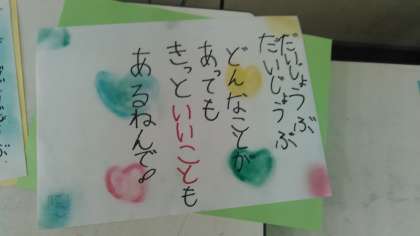 だいじょうぶ
だいじょうぶ
どんなことが
あっても
きっといいことも
あるねんで。